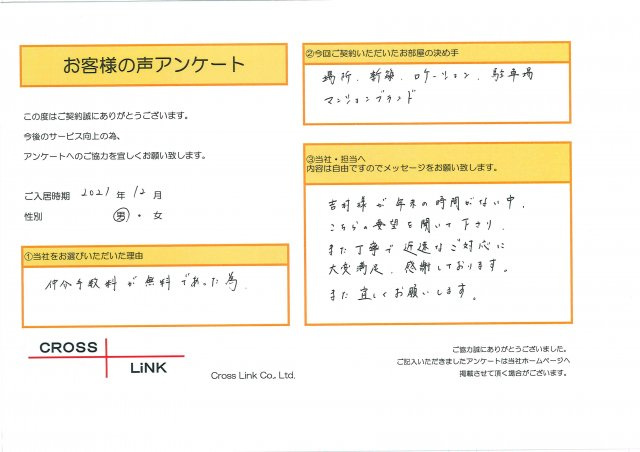 お客様の声アンケート
この度はご契約誠にありがとうございます。
今後のサービス向上の為、
アンケートへのご協力を宜しくお願い致します。
ご入居時期 2021年12月
性別 男・女
①当社をお選びいただいた理由
仲介手数料が無料であった為
CROSS
LiNK
Cross Link Co., Ltd.
②今回ご契約いただいたお部屋の決め手
場所、新築、ロケーション、駐車場
マンションブランド
③当社・担当へ
内容は自由ですのでメッセージをお願い致します。
吉村様が年末の時間がない中、
こちらの要望を聞いて下さり、
また丁寧で迅速なご対応に
大変満足、感謝しております。
また宜しくお願いします。
ご協力誠にありがとうございました。
ご記入いただきましたアンケートは当社ホームページへ
掲載させて頂く場合がございます。